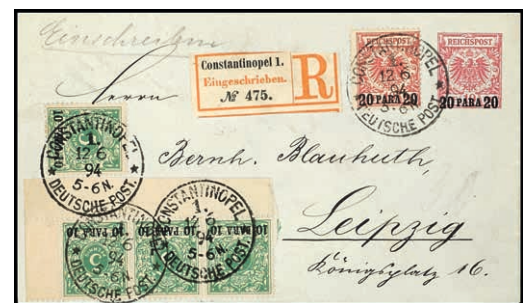 Einschreiben
Constantinopel 1.
Eingeschrieben.
№ 475.
R
REICHSPOST
20 PARA 20
20 PARA 20
CONSTANTINOPEL
1.
12 6
94
5-6N.
DEUTSCHE POST.
Herrn
10 PARA 10
CONSTANTINOPEL
1.
12 6
94
5-6N.
DEUTSCHE POST.
Bernh. Blauhuth,
Leipzig
Königsplatz 16.
10 PARA 10
10 PARA 10
10 PARA 10
CONSTANTINOPEL
12 6
94
5-6N.
DEUTSCHE POST.
CONSTANTINOPEL
1.
94
5-6N.
DEUTSCHE POST.